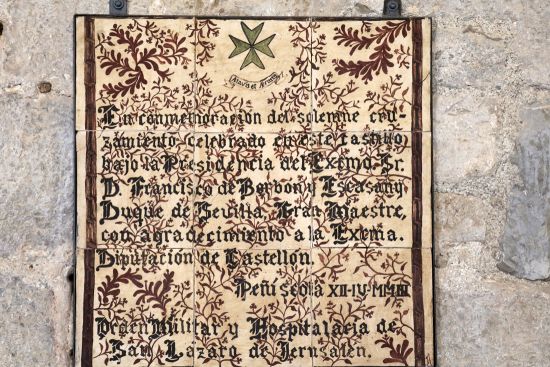 Atavis et Armis
En conmemoración del solemne cru-
zamiento celebrado en este castillo
bajo la Presidencia del Excmo. Sr.
D. Francisco de Borbon y Escasany
Duque de Sevilla, Gran Maestre,
con agradecimiento a la Excma.
Diputación de Castellón.
Peñiscola XII-IV-MMIII
Orden Militar y Hospitalaria de
San Lazaro de Jerusalen.